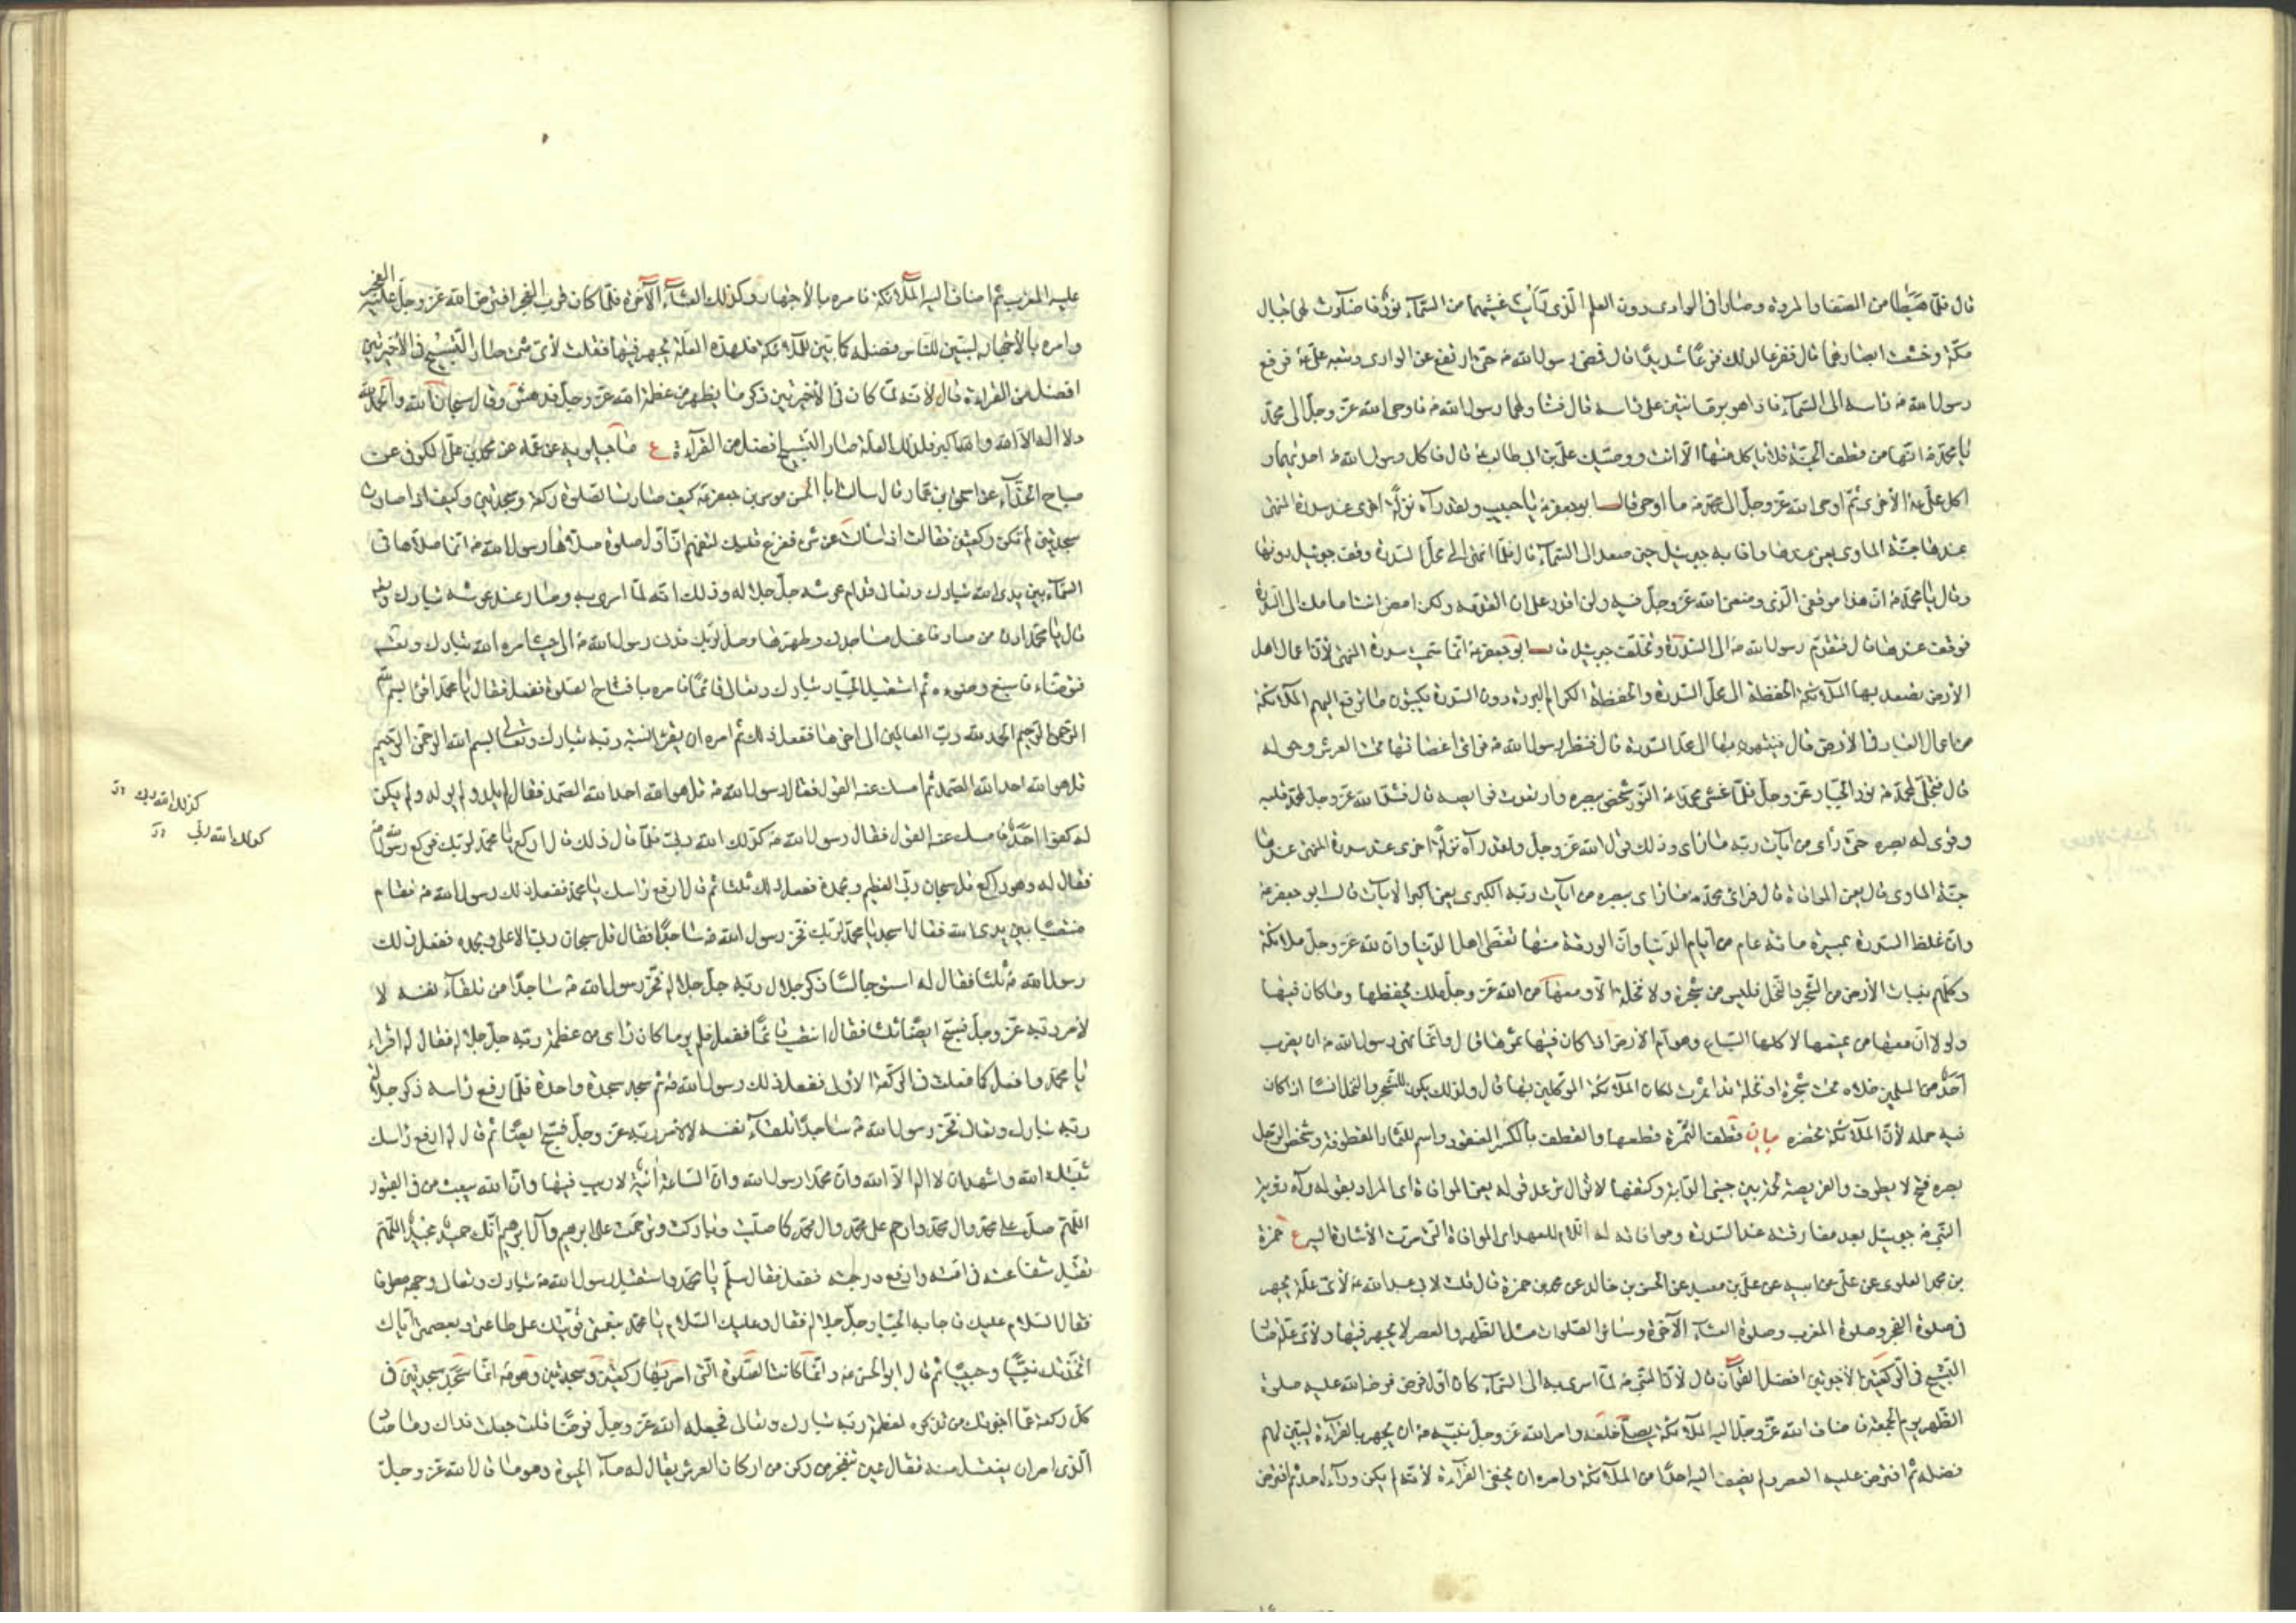 قال فلما هبطا من الصفا والمروة وصارا فى الوادى دون العلم الذى رايت غشيهما من السماء نور فاضاءت لهما جبال
مكة وخشعت ابصارهما قال ففزعا لذلك فزعا شديدا قال فمضى رسول الله ص حتى ارتفع عن الوادى وتبعه على ع فرفع
رسول الله ص راسه الى السماء فاذا هو برمانتين على راسه قال فتناولهما رسول الله ص فاوحى الله عز وجل الى محمد
يا محمد ص انها من قطف الجنة فلا ياكل منها الا انت ووصيك على بن ابى طالب ع قال فاكل رسول الله ص احديهما و
اكل على ع الاخرى ثم اوحى الله عز وجل الى محمد ص ما اوحى قال ابو جعفر ع يا حبيب ولقد رآه نزلة اخرى عند سدرة المنتهى
عندها جنة الماوى يعنى عندها وافا به جبرئيل حين صعد الى السماء قال فلما انتهى الى محل السدرة وقف جبرئيل دونها
وقال يا محمد ص ان هذا موقفى الذى وضعنى الله عز وجل فيه ولن اقدر على ان اتقدمه ولكن امض انت امامك الى السدرة
فوقف عندها قال فتقدم رسول الله ص الى السدرة وتخلف جبرئيل قال ابو جعفر ع انما سميت سدرة المنتهى لان اعمال اهل
الارض تصعد بها الملائكة الحفظة الى محل السدرة والحفظة الكرام البررة دون السدرة يكتبون ما ترفع اليهم الملائكة
من اعمال العباد فى الارض قال فينتهون بها الى محل السدرة قال فنظر رسول الله ص فراى اغصانها تحت العرش وحوله
قال فتجلى لمحمد ص نور الجبار عز وجل فلما غشى محمدا ص النور شخص ببصره وارتعدت فرايصه قال فشد الله عز وجل لمحمد قلبه
وقوى له بصره حتى رأى من آيات ربه ما رأى وذلك قول الله عز وجل ولقد رآه نزلة اخرى عند سدرة المنتهى عندها
جنة الماوى قال يعنى الموافاة قال فراى محمد ص ما رأى ببصره من آيات ربه الكبرى يعنى اكبر الآيات قال ابو جعفر ع
وان غلظ السدرة بمسيرة مائة عام من ايام الدنيا وان الورقة منها تغطى اهل الدنيا وان لله عز وجل ملائكة
وكلهم بنبات الارض من الشجر والنخل فليس من شجرة ولا نخلة الا ومعها من الله عز وجل ملك يحفظها وما كان فيها
ولولا ان معها من يمنعها لاكلها السباع وهوام الارض اذا كان فيها ثمرها قال وانما نهى رسول الله ص ان يضرب
احد من المسلمين خلاه تحت شجرة او نخلة قد اثمرت لمكان الملائكة الموكلين بها قال ولذلك يكون للشجر والنخل انسا اذا كان
فيه حمله لان الملائكة تحضره بيان قطف الثمرة قطعها والقطف بالكسر العنقود واسم للثمار المقطوفة وشخص الرجل
بصره فتح لا يطرف والفريصة لحمة بين جنبى الدابة وكتفها لا تزال ترعد قوله يعنى الموافاة اى المراد بقوله رآه رؤية
النبى ص جبرئيل بعد مفارقته عند السدرة وموافاته له او اللام للعهد اى الموافاة التى مرت الاشارة اليه ع حمزة
بن محمد العلوى عن على عن ابيه عن على بن معبد عن الحسين بن خالد عن محمد بن حمزة قال قلت لابى عبد الله ع لاى علة يجهر
فى صلوة الفجر وصلوة المغرب وصلوة العشاء الآخرة وسائر الصلوات مثل الظهر والعصر لا يجهر فيها ولاى علة صار
التسبيح فى الركعتين الاخيرتين افضل من القرآن قال لان النبى ص لما اسرى به الى السماء كان اول فرض فرضه الله عليه صلوة
الظهر يوم الجمعة فاضاف الله عز وجل اليه الملائكة يصلى خلفه وامر الله عز وجل نبيه ص ان يجهر بالقراءة ليبين لهم
فضله ثم افترض عليه العصر ولم يضف اليه احدا من الملائكة وامره ان يخفى القراءة لانه لم يكن وراءه احد ثم افترض
عليه المغرب ثم اضاف اليه الملائكة فامره بالاجهار وكذلك العشاء الآخرة فلما كان قرب الفجر افترض الله عز وجل عليه الفجر
وامره بالاجهار ليبين للناس فضله كما بين للملائكة فلهذه العلة يجهر فيها فقلت لاى شىء صار التسبيح فى الاخيرتين
افضل من القراءة قال لانه لما كان فى الاخيرتين ذكر ما يظهر من عظمة الله عز وجل فدهش وقال سبحان الله والحمد لله
ولا اله الا الله والله اكبر فلذلك العلة صار التسبيح افضل من القراءة ع ماجيلويه عن عمه عن محمد بن على الكوفى عن
صباح الحذاء عن اسحق بن عمار قال سالت ابا الحسن موسى بن جعفر ع كيف صارت الصلوة ركعة وسجدتين وكيف اذا صارت
سجدتين لم تكن ركعتين فقال اذا سالت عن شىء ففرغ قلبك لتفهم ان اول صلوة صلاها رسول الله ص انما صلاها فى
السماء بين يدى الله تبارك وتعالى قدام عرشه جل جلاله وذلك انه لما اسرى به وصار عند عرشه تبارك وتعالى
قال يا محمد ادن من صاد فاغسل مساجدك وطهرها وصل لربك فدنا رسول الله ص الى حيث امره الله تبارك وتعالى
فتوضاء فاسبغ وضوءه ثم استقبل الجبار تبارك وتعالى قائما فامره بافتتاح الصلوة ففعل فقال يا محمد اقرا بسم الله
الرحمن الرحيم الحمد لله رب العالمين الى اخرها ففعل ذلك ثم امره ان يقرء نسبة ربه تبارك وتعالى بسم الله الرحمن الرحيم
قل هو الله احد الله الصمد ثم امسك عنه القول فقال رسول الله ص قل هو الله احد الله الصمد فقال لم يلد ولم يولد ولم يكن
له كفوا احد فامسك عنه القول فقال رسول الله ص كذلك الله ربى فلما قال ذلك قال اركع يا محمد لربك فركع رسول الله ص
فقال له وهو راكع قل سبحان ربى العظيم وبحمده ففعل ذلك ثلثا ثم قال ارفع راسك يا محمد ففعل ذلك رسول الله ص فقام
منتصبا بين يدى الله فقال اسجد يا محمد لربك فخر رسول الله ص ساجدا فقال قل سبحان ربى الاعلى وبحمده ففعل ذلك
رسول الله ص ثلثا فقال له استو جالسا ذكر جلال ربه جل جلاله فخر رسول الله ص ساجدا من تلقاء نفسه لا
لامر ربه عز وجل فسبح ايضا ثلثا فقال انتصب قائما ففعل فلم ير ما كان رأى من عظمة ربه جل جلاله فقال له اقراء
يا محمد وافعل كما فعلت فى الركعة الاولى ففعل ذلك رسول الله ص ثم سجد سجدة واحدة فلما رفع راسه ذكر جلالة
ربه تبارك وتعالى فخر رسول الله ص ساجدا من تلقاء نفسه لا لامر ربه عز وجل فسبح ايضا ثم قال له ارفع راسك
ثبتك الله واشهد ان لا اله الا الله وان محمدا رسول الله وان الساعة آتية لا ريب فيها وان الله يبعث من فى القبور
اللهم صل على محمد وال محمد وارحم على محمد وال محمد كما صليت وباركت وترحمت على ابرهيم وآل ابرهيم انك حميد مجيد اللهم
تقبل شفاعته فى امته وارفع درجته ففعل فقال سلم يا محمد واستقبل رسول الله ص تبارك وتعالى وجهه مطرقا
فقال السلام عليك فاجابه الجبار جل جلاله فقال وعليك السلام يا محمد بنعمتى قويتك على طاعتى وبعصمتى اياك
اتخذتك نبيا وحبيبا ثم قال ابو الحسن ع وانما كانت الصلوة التى امر بها ركعتين وسجدتين وهو ص انما سجد سجدتين فى
كل ركعة عما اخبرتك من تذكره لعظمة ربه تبارك وتعالى فجعله الله عز وجل فرضا قلت جعلت فداك وما صاد
الذى امر ان يغتسل منه فقال عين تنفجر من ركن من اركان العرش يقال له ماء الحيوة وهو ما قال الله عز وجل
كذلك الله ربى
كذلك الله ربى